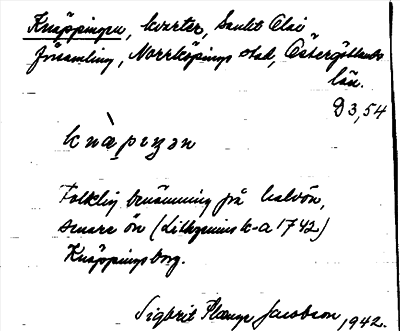 Knäppingen, kvarter, Sankt Olai
församling, Norrköpings stad, Östergötlands
län.
D3,54
knàpeŋən
Folklig benämning på halvön,
senare ön (Lithzenius k-a 1742)
Knäppingsborg.
Sigbrit Plænge Jacobson, 1942.